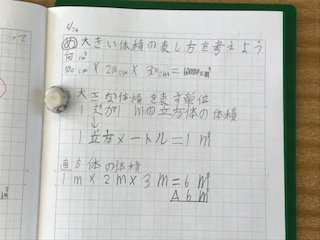 め 大きい体積の表し方を考えよう
何cm³
100cm×200cm×300cm=6000000cm³
大きな体積を表す単位
1辺が1mの立方体の体積
↓
1立方メートル=1m³
直方体の体積
1m×2m×3m=6m³
A 6m³